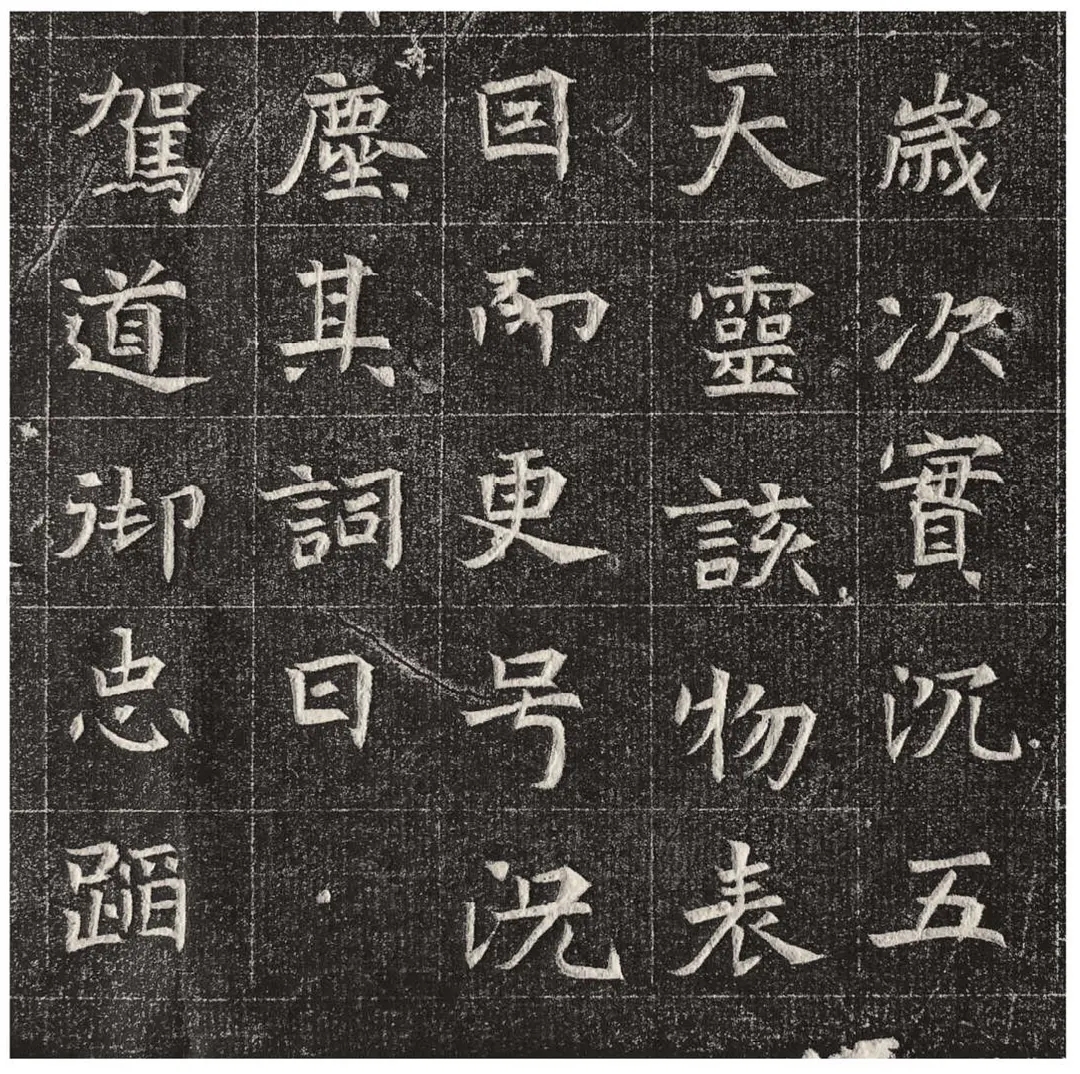 歳次實沉五
天靈該物表
囙更号況
塵其詞曰
駕道御忠蹈